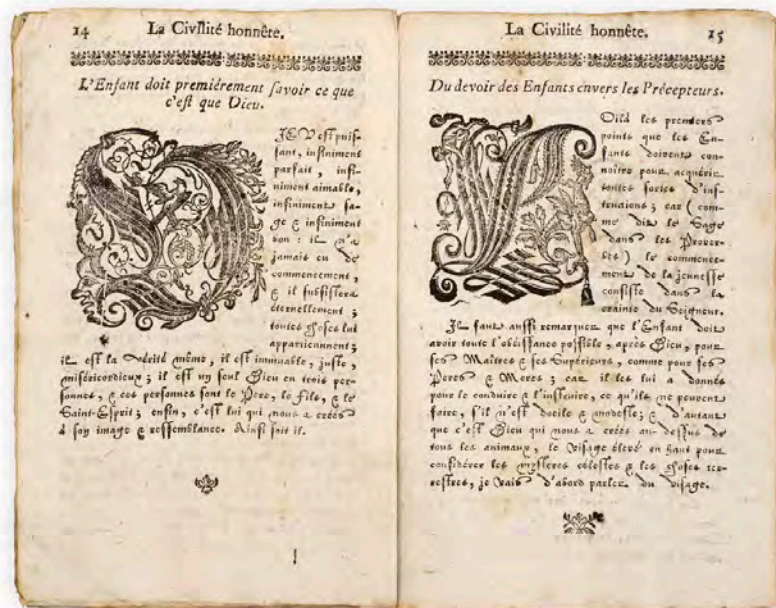 14 La Civilité honnête.
L'Enfant doit premiérement savoir ce que
c'est que Dieu.
DIEU est puis-
sant, infiniment
parfait, infi-
niment aimable,
infiniment sa-
ge & infiniment
bon : il n'a
jamais eu de
commencement,
& il subsistera
éternellement ;
toutes choses lui
appartiennent ;
il est la vérité même, il est immuable, juste,
miséricordieux ; il est un seul Dieu en trois per-
sonnes, & ces personnes sont le Pere, le Fils, & le
Saint-Esprit ; enfin, c'est lui qui nous a créés
à son image & ressemblance. Ainsi soit il.
La Civilité honnête. 15
Du devoir des Enfants envers les Précepteurs.
Voilà les premiers
points que les En-
fants doivent con-
noître pour acquérir
toutes sortes d'ins-
truaions ; car (com-
me dit le Sage
dans les Prover-
bes) le commence-
ment de la jeunesse
consiste dans la
crainte du Seigneur.
Il faut aussi remarquer que l'Enfant doit
avoir toute l'obéissance possible, après Dieu, pour
ses Maîtres & ses Supérieurs, comme pour ses
Peres & Meres ; car il les lui a donnés
pour le conduire & l'instruire, ce qu'ils ne peuvent
faire, s'il n'est docile & modeste ; & d'autant
que c'est Dieu qui nous a créés au-dessus de
tous les animaux, le visage élevé en haut pour
considérer les mysteres célestes & les choses ter-
restres, je vais d'abord parler du visage.